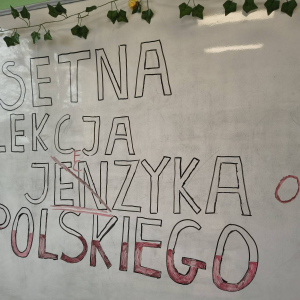 SETNA
LEKCJA
JENZYKA
POLSKIEGO